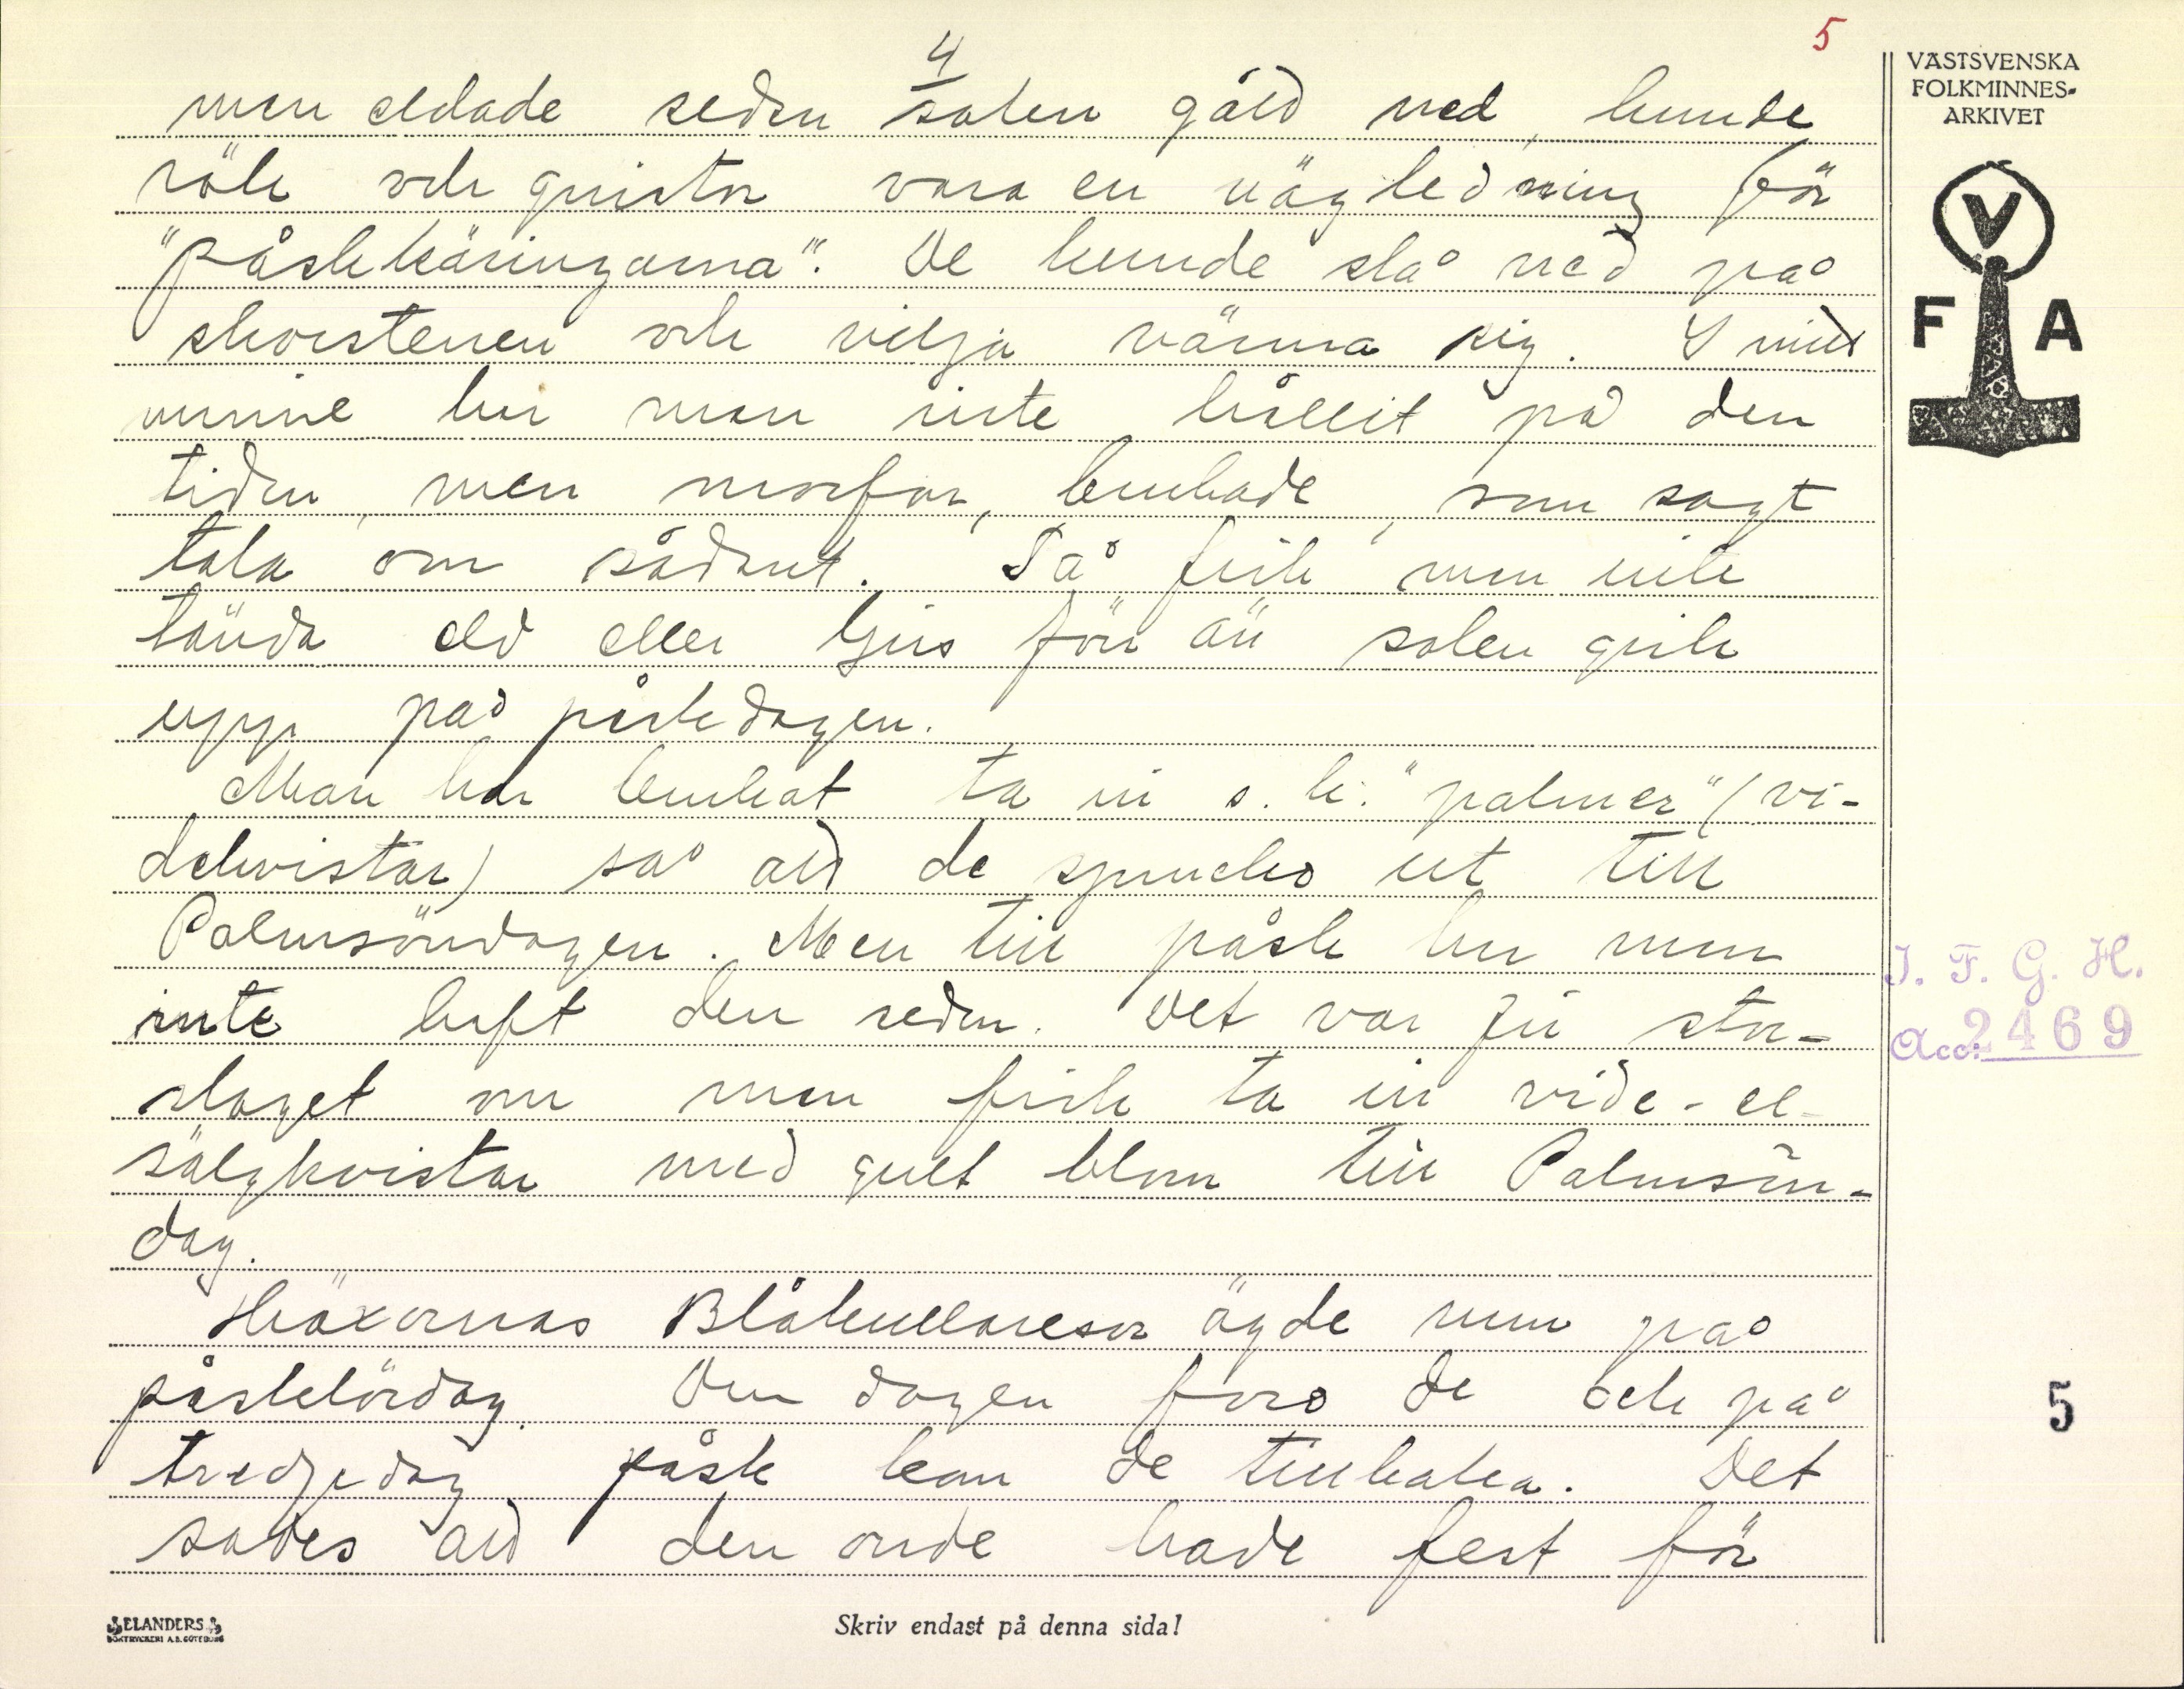 4
5
man eldade sedan solen gått ned, kunde
rök och gnistor vara en vägledning för
"påskkäringarna". De kunde slå ned på
skorstenen och vilja värma sig. I mitt
minne har man inte hållit på den
tiden, men morfar, brukade, som sagt
tala om sådant. Då fick man inte
tända eld eller ljus förr än solen gick
upp på påskdagen.
Man har brukat ta in s. k. "palmer" (vi-
dekvistar) så att de sprucko ut till
Palmsöndagen. Men till påsk har man
inte haft den seden. Det var ju stor-
slaget om man fick ta in vide- el
sälgkvistar med gult blom till Palmsön-
dag.
Häxornas Blåkullaresor ägde rum på
påsklördag. Den dagen foro de och på
tredjedag påsk kom de tillbaka. Det
sades att den onde hade fest för
VÄSTSVENSKA
FOLKMINNES-
ARKIVET
V
F A
I. F. G. H.
Acc: 2469
5
ELANDERS
BOKTRYCKERI A.B. GÖTEBORG
Skriv endast på denna sida!